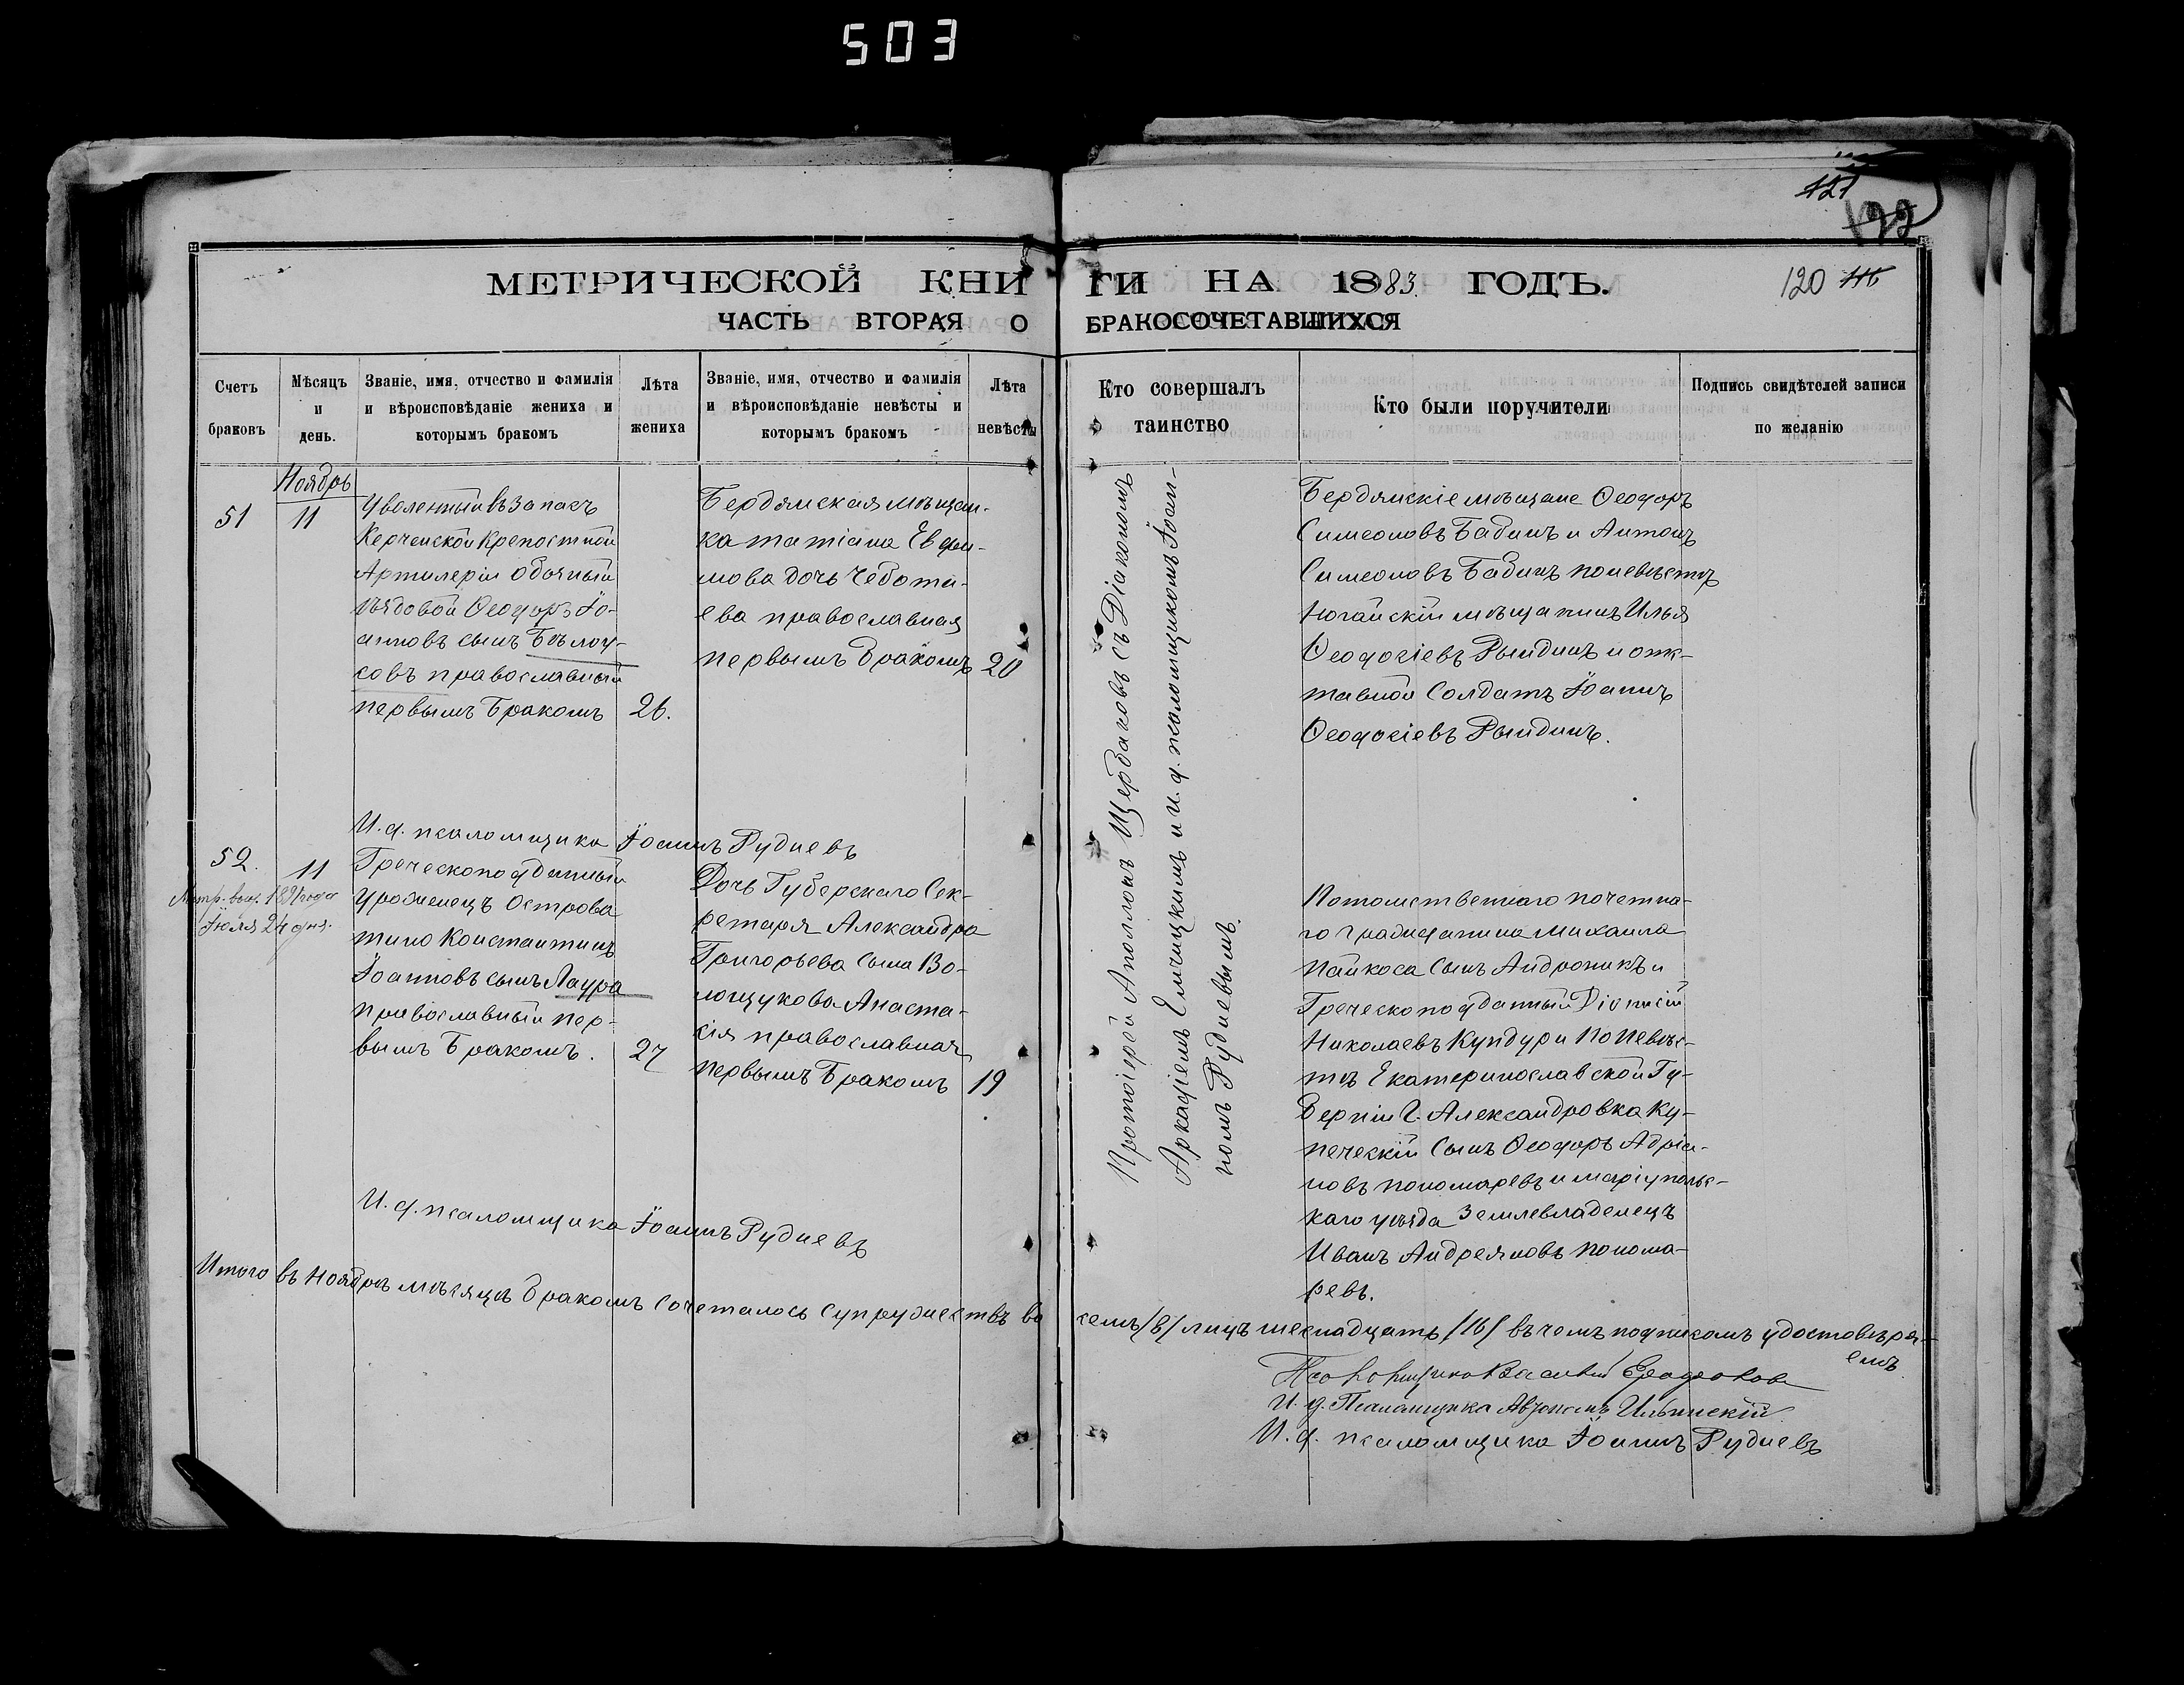 503
121
122
МЕТРИЧЕСКОЙ КНИГИ НА 1883 ГОДЪ.
120
ЧАСТЬ ВТОРАЯ О БРАКОСОЧЕТАВШИХСЯ
Счетъ браковъ
Мѣсяцъ и день.
Званіе, имя, отчество и фамилія и вѣроисповѣданіе жениха и которымъ бракомъ
Лѣта жениха
Званіе, имя, отчество и фамилія и вѣроисповѣданіе невѣсты и которымъ бракомъ
Лѣта невѣсты
Кто совершалъ таинство
Кто были поручители
Подпись свидѣтелей записи по желанію
Ноябрь
51
11
Уволенный въ запасъ
Керченской Крепостной
Артилеріи
рядовой Ѳеодоръ Іо-
анновъ сынъ Бѣлоу-
совъ православный
первымъ бракомъ
26.
Бердянская мѣщан-
ка Татіана Ефи-
мова дочь Чебота-
ева православная
первымъ бракомъ
20
Протоіерей Аполлонъ Щербаковъ съ Діакономъ
Аркадіемъ и и. д. псаломщикомъ Іоан-
номъ Рудневымъ.
Бердянскіе мѣщане Ѳеодоръ
Симеоновъ Бабинъ и Антонъ
Симеоновъ Бабинъ по невѣстѣ
Ногайскій мѣщанинъ Илья
Ѳеодосіевъ Рындинъ и отс-
тавной Солдатъ Іоаннъ
Ѳеодосіевъ Рындинъ.
И. д. псаломщика Іоаннъ Рудневъ
52.
11
Метр. вып. 1891 года
Іюля 24 дня.
Греческоподданный
уроженецъ Острова
Тино Константинъ
Іоанновъ сынъ Лаура
православный пер-
вымъ бракомъ.
27
Дочь Губерскаго Сек-
ретаря Александра
Григорьева сына Во-
лощукова Анаста-
сія православная
первымъ бракомъ
19
Потомственнаго почетна-
го гражданина Михаила
сынъ Андроникъ и
Греческоподданный Діонисій
Николаевъ Кундури по невѣс-
тѣ Екатеринославской Гу-
берніи Г. Александровка Ку-
печескій сынъ Ѳеодоръ Адріа-
новъ Пономаревъ и маріупольс-
каго уѣзда Землевладелецъ
Иванъ Андреяновъ Понома-
ревъ.
И. д. псаломщика Іоаннъ Рудневъ
Итого въ Ноябрѣ мѣсяцѣ бракомъ сочеталось супружествъ восемь /8/ лицъ шеснадцать /16/ въ чемъ подписомъ удостовѣря-
емъ
Псаломщикъ Василій
И. д. Псаломщика Ильинскій
И. д. псаломщика Іоаннъ Рудневъ